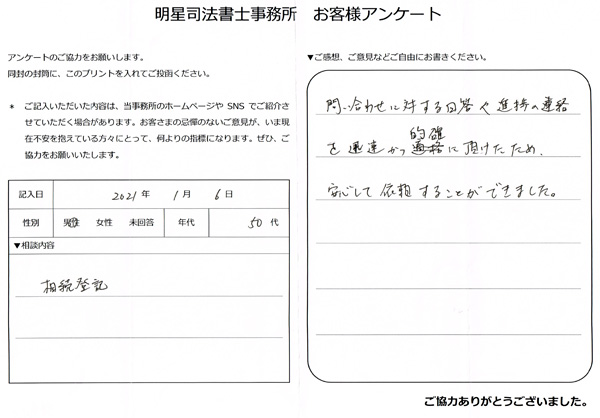 明星司法書士事務所 お客様アンケート
アンケートのご協力をお願いします。
同封の封筒に、このプリントを入れてご投函ください。
* ご記入いただいた内容は、当事務所のホームページや SNS でご紹介さ
せていただく場合があります。お客さまの忌憚のないご意見が、いま現
在不安を抱えている方々にとって、何よりの指標になります。ぜひ、ご
協力をお願いいたします。
記入日 2021 年 1 月 6 日
性別 男性 女性 未回答 年代 50 代
▼相談内容
相続登記
▼ご感想、ご意見などご自由にお書きください。
問い合わせに対する回答や進捗の連絡
的確
を迅速かつ に頂けたため、
安心して依頼することができました。
ご協力ありがとうございました。